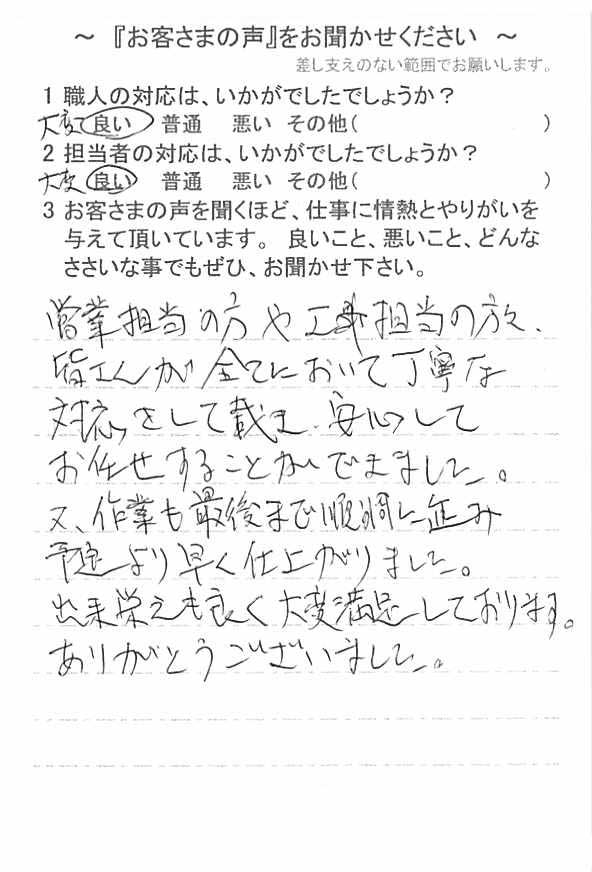 ～ 『お客さまの声』をお聞かせください ～
差し支えのない範囲でお願いします。
1 職人の対応は、いかがでしたでしょうか？
大変 良い 普通 悪い その他( )
2 担当者の対応は、いかがでしたでしょうか？
大変 良い 普通 悪い その他( )
3 お客さまの声を聞くほど、仕事に情熱とやりがいを
与えて頂いています。 良いこと、悪いこと、どんな
ささいな事でもぜひ、お聞かせ下さい。
営業担当の方や工事担当の方と、
皆さんが全てにおいて丁寧な
対応をして戴き、安心して
お任せすることができました。
又、作業も最後まで順調に進み
予定より早く仕上がりました。
出来栄えも良く大変満足しております。
ありがとうございました。